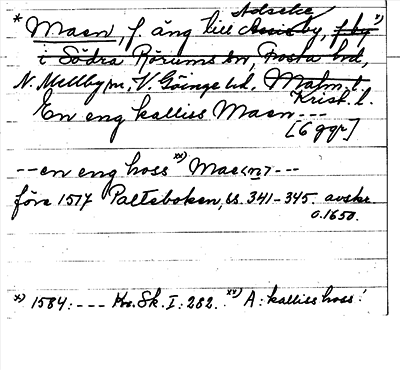 Adseke
* Maen, f. äng till Assisby, f. by x)
i Södra Rörums sn, Frosta hd,
N. Mellby sn, V. Göinge hd, Malm. l.
Krist. l.
En eng kalliss Maen ---
[6 ggr]
-- en eng hoss xx) Mae<n> ---
före 1517 Palteboken, ss. 341-345. avskr.
o. 1650.
x) 1584: --- Kr. Sk. I: 282. xx) A: kalliss hoss!